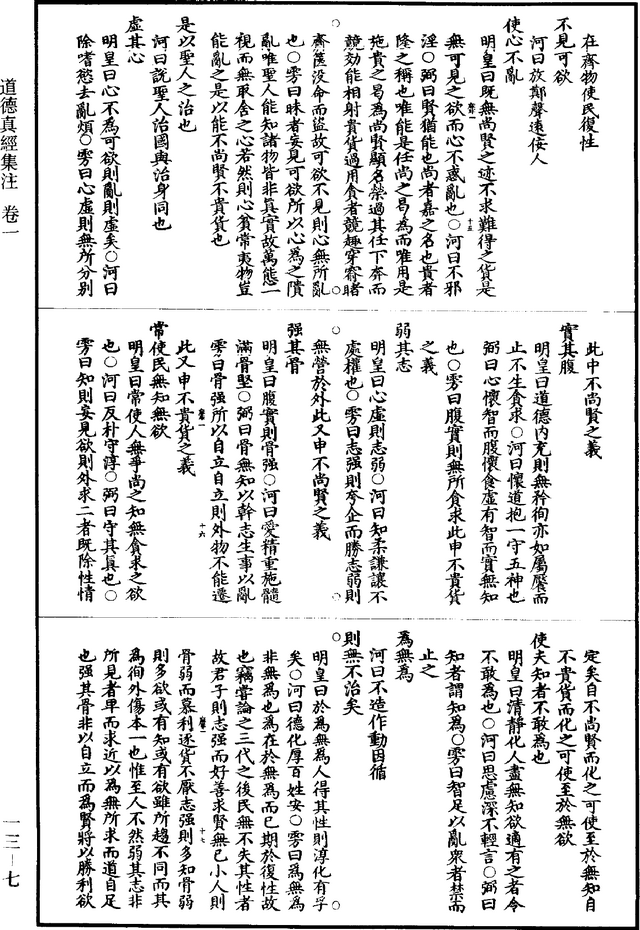 在齊物使民復性
不見可欲
河曰放鄭聲遠佞人
使心不亂
明皇曰既無尚賢之迹不求難得之貨是
無可見之欲而心不惑亂也○河曰不邪
淫○弼曰賢猶能也尚者嘉之名也貴者
隆之稱也唯能是任尚之曷為而唯用是
施貴之曷為尚賢顯名榮過其任下奔而
競効能相射貴貨過用貪者競趣穿窬睹
齋篋沒命而盜故可欲不見則心無所亂
也○雱曰昧者妄見可欲所以心為之潰
亂唯聖人能知諸物皆非真實故萬態一
視而無取舍之心若然則心貧常夷物豈
能亂之是以能不尚賢不貴貨也
是以聖人之治也
河曰說聖人治國與治身同也
虛其心
明皇曰心不為可欲則亂則虛矣○河曰
除嗜慾去亂煩○雱曰心虛則無所分別
此中不尚賢之義
實其腹
明皇曰道德內充則無矜徇亦如屬饜而
止不生貪求○河曰懷道抱一守五神也
弼曰心懷智而腹懷食虛有智而實無知
也○雱曰腹實則無所貪求此申不貴貨
之義
弱其志
明皇曰心虛則志弱○河曰知柔謙讓不
處權也○雱曰志強則夸企而勝志弱則
無營於外此又申不尚賢之義
强其骨
明皇曰腹實則骨强○河曰愛精重施髓
滿骨堅○弼曰骨無知以幹志生事以亂
雱曰骨强所以自立自立則外物不能遷
此又申不貴貨之義
常使民無知無欲
明皇曰常使人無爭尚之知無貪求之欲
也○河曰反朴守淳○弼曰守其真也○
雱曰知則妄見欲則外求二者既除性情
定矣自不尚賢而化之可使至於無知自
不貴貨而化之可使至於無欲
使夫知者不敢為也
明皇曰清靜化人盡無知欲適有之者令
不敢為也○河曰思慮深不輕言○弼曰
知者謂知為○雱曰智足以亂衆者禁而
止之
為無為
河曰不造作動因循
則無不治矣
明皇曰於為無為人得其性則淳化有孚
矣○河曰德化厚百姓安○雱曰為無為
非無為也為在於無為而已期於復性故
也竊嘗論之三代之後民無不失其性者
故君子則志强而好善求賢無已小人則
骨弱而慕利逐貨不厭志强則多知骨弱
則多欲或有知或有欲雖所趨不同而其
為徇外傷本一也惟至人不然弱其志非
所見者卑而求近以為無所求而道自足
也强其骨非以自立而為賢將以勝利欲
道德真經集注 卷一
一三－七